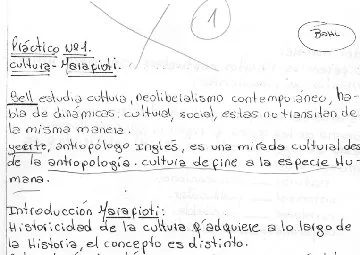 1
BOHL
Práctico Nº1.
cultura - Marafioti.
Bell estudia cultura, neoliberalismo contemporáneo, ha-
bla de dinámicas: cultural, social, estas no transitan de
la misma manera.
yeerte, antropólogo Inglés, es una mirada cultural des
de la antropología. cultura define a la especie Hu-
mana.
Introducción Marafioti:
Historicidad de la cultura q'adquiere a lo largo de
la Historia, el concepto es distinto.